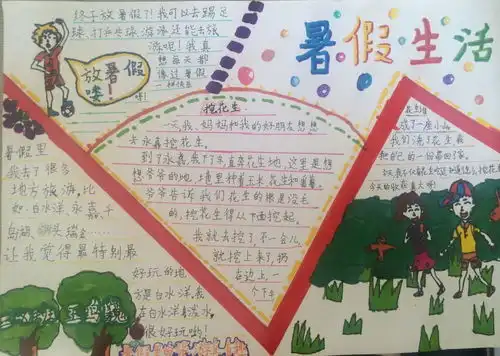 终于放暑假了!我可以去踢足
球、打乒乓球、游泳还能去旅
游呢!我真
想每天都
像过暑假
一样快乐
呀!
放暑假
喽!
暑假生活
挖花生
一天,我、妈妈和我的好朋友想想
去永嘉挖花生。
到了永嘉,我们下车直奔花生地,这里是想
想爷爷的地,
爷爷告诉我们花生的根是没毛
的,挖花生得从下面挖起。
我就去挖了,不一会儿,
就挖上来了,扔
在边上,一
个下午
成了一座小山
我们洗了花生,
把自己的一份带回了家。
暑假里
我去了很多
地方旅游,比
如:白水洋、永嘉、千
岛湖、
让我觉得最特别最
好玩的地
方是白水洋,我
在白水洋
很好玩哟!